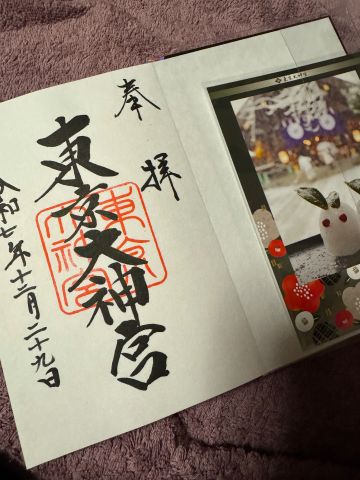 奉拝
東京大神宮
令和七年十二月二十九日
東京大神宮